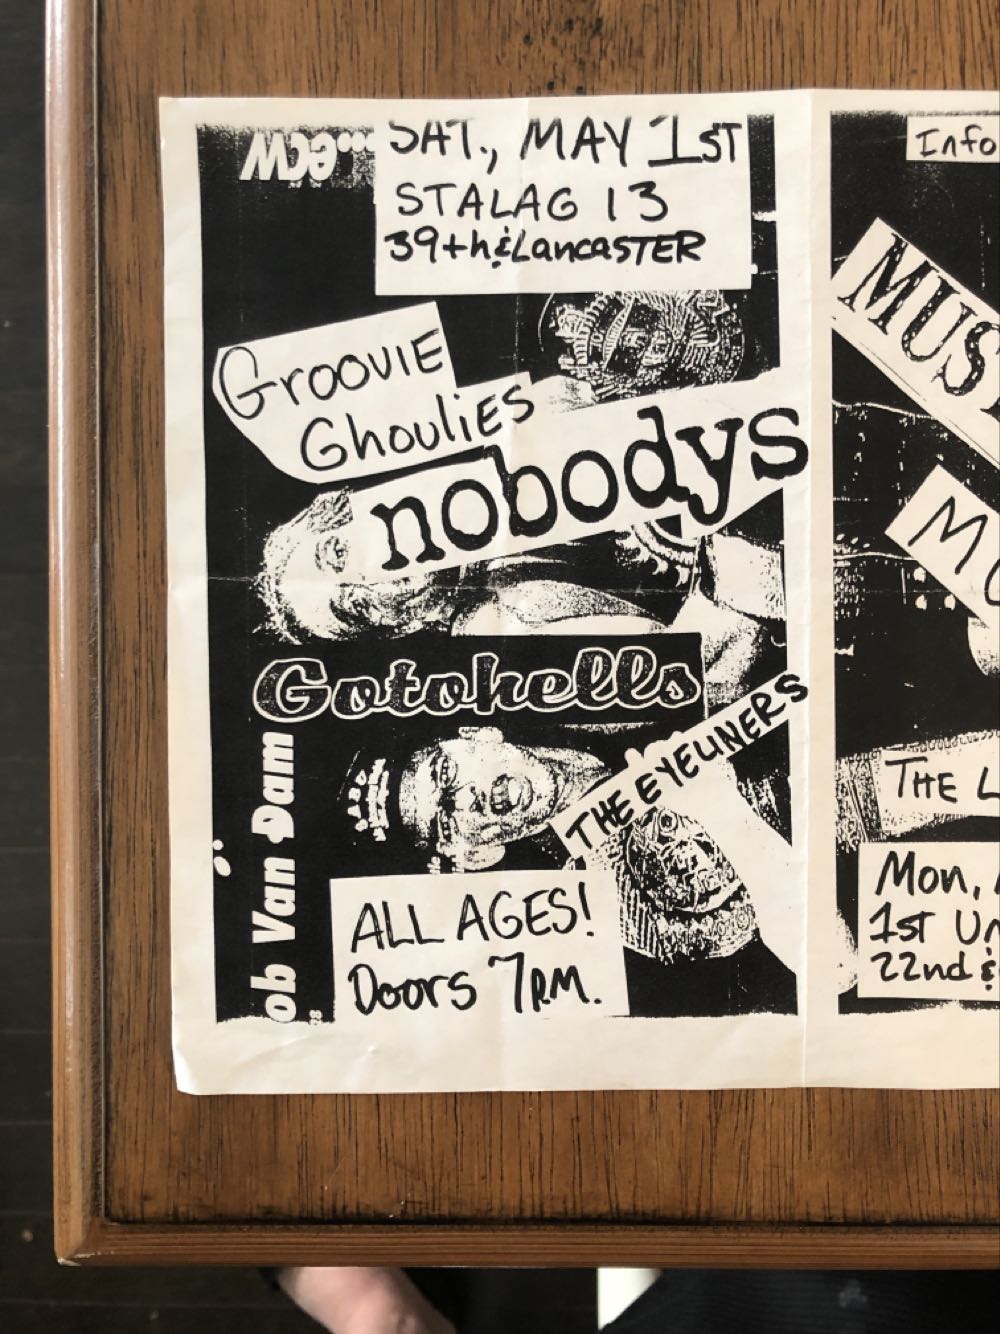 ...ecw
SAT., MAY 1ST
STALAG 13
39th & Lancaster
Groovie
Ghoulies
nobodys
Gotohells
THE EYELINERS
ob Van Dam
ALL AGES!
Doors 7P.M.
Info
MUS
THE L
Mon,
1st Un
22nd &